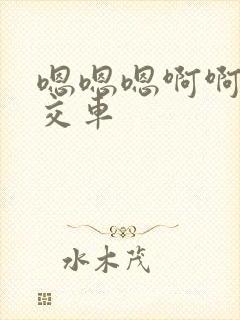 嗯嗯嗯啊啊
交车
水木茂